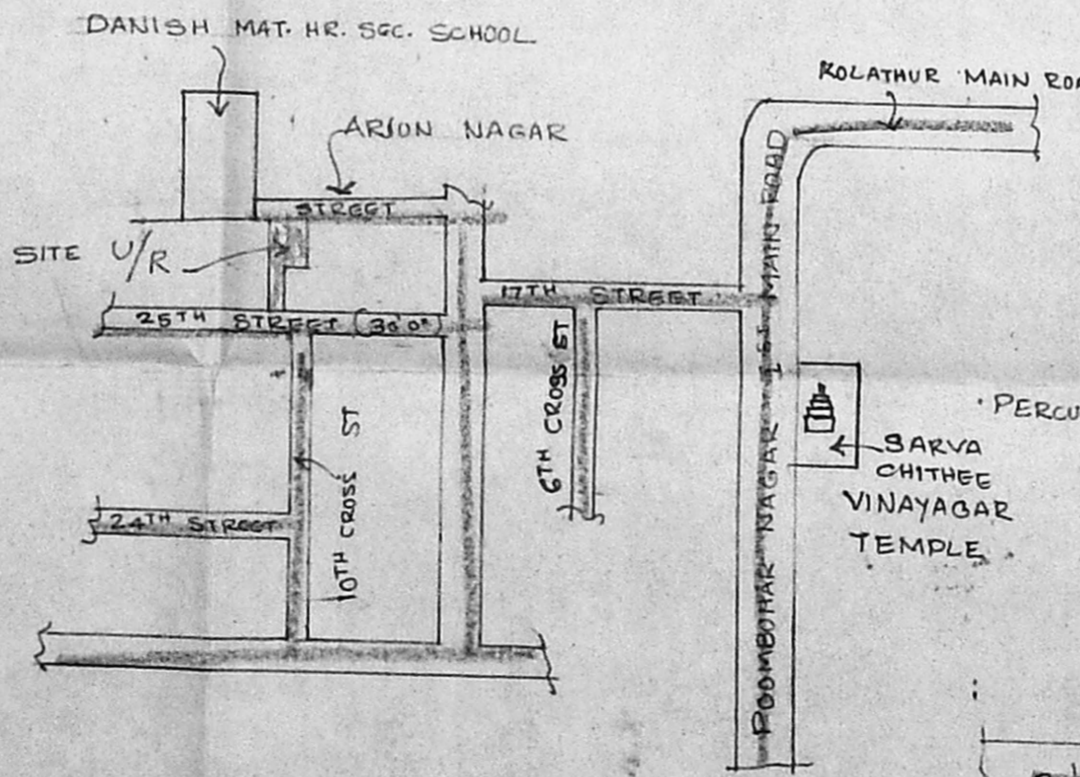 DANISH MAT. HR. SEC. SCHOOL
KOLATHUR MAIN ROA
ARJUN NAGAR
STREET
SITE U/R
17TH STREET
25TH STREET (30'0")
6TH CROSS ST
10TH CROSS ST
24TH STREET
POOMBUHAR NAGAR I MAIN ROAD
PERCU
SARVA
CHITHEE
VINAYAGAR
TEMPLE